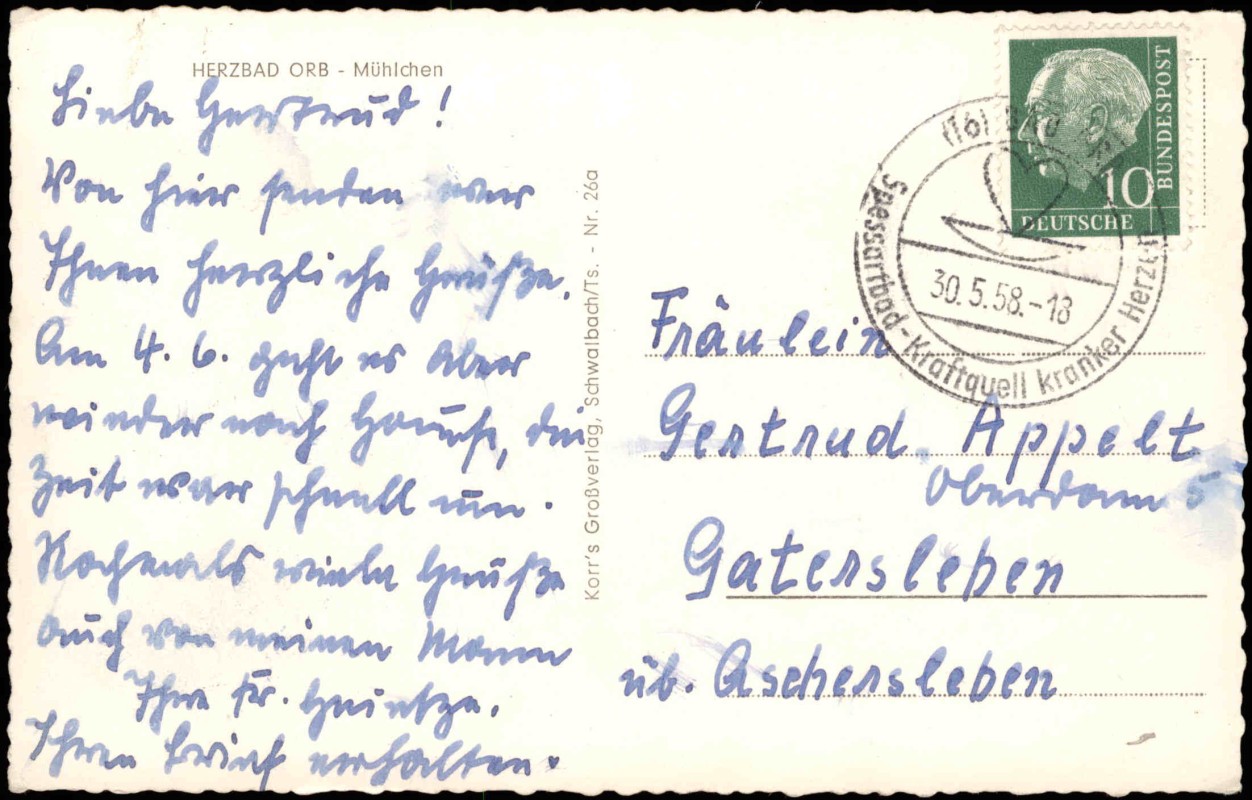 HERZBAD ORB - Mühlchen
Liebe Gertrud!
Von hier senden wir
Ihnen herzliche Grüße.
Am 4. 6. geht es aber
wieder nach Hause, die
Zeit war schnell um.
Nochmals viele Grüße
auch von meinen Mann
Ihre Fr.
Ihren Brief erhalten.
Korr's Großverlag, Schwalbach/Ts. - Nr. 26a
DEUTSCHE
BUNDESPOST
10
(16) BAD ORB
Spessartbad-Kraftquell kranker Herzen
30.5.58.-18
Fräulein
Gertrud Appelt
Oberdorn 5
Gatersleben
üb. Aschersleben